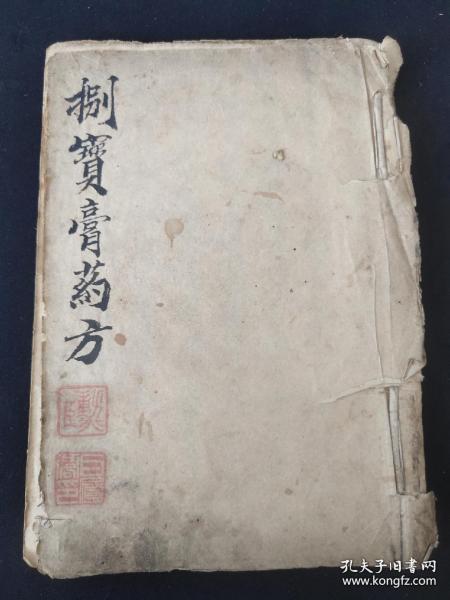 捌寳膏葯方
孔夫子旧书网
www.kongfz.com